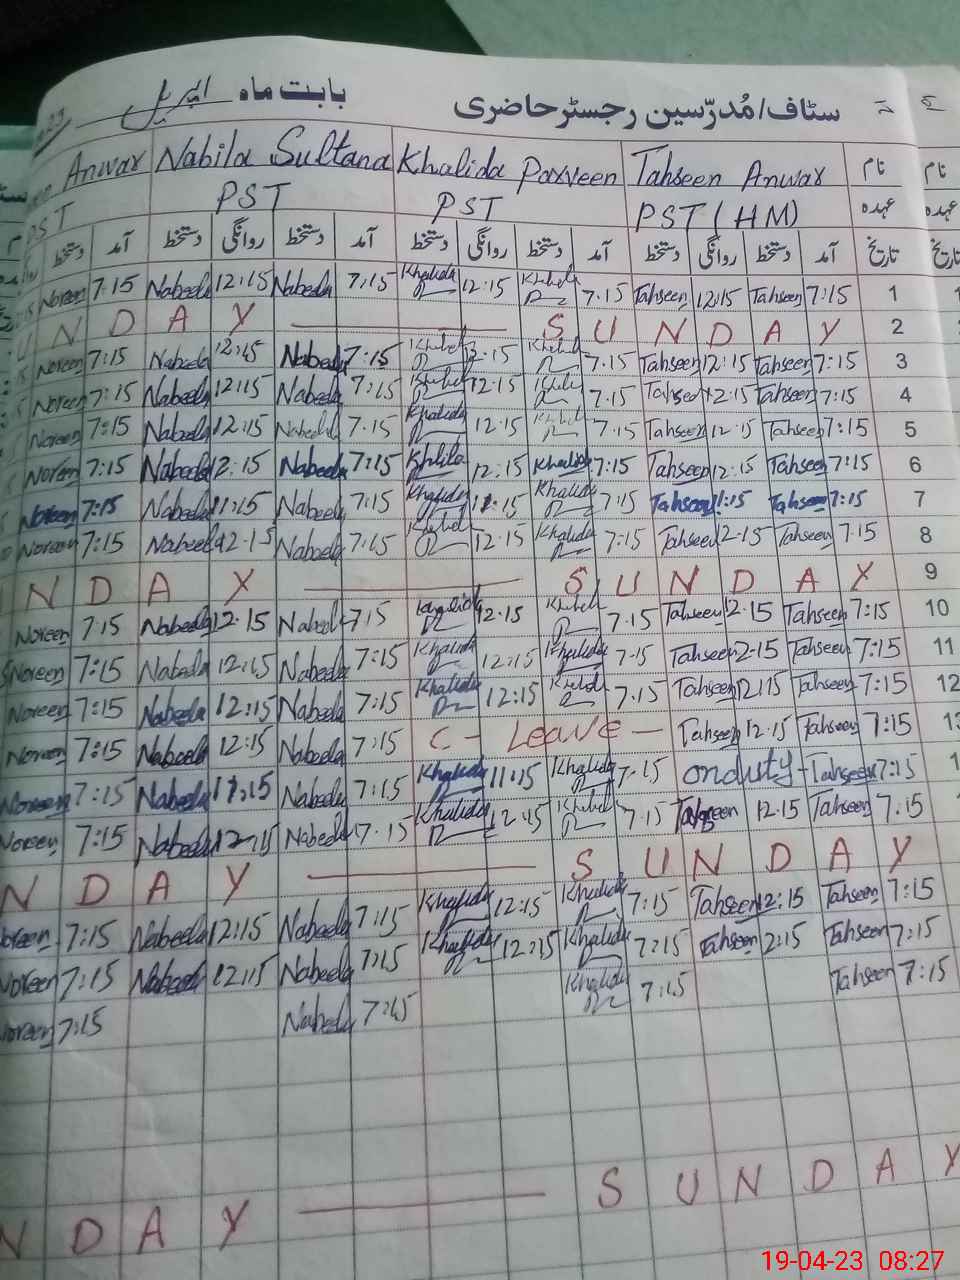 بابت ماہ اپریل
سٹاف/مُدرّسین رجسٹر حاضری
Anwar Nabila Sultana Khalida Parveen Tahseen Anwar نام نام
PST PST PST (HM) عہدہ عہدہ
دستخط آمد دستخط روانگی دستخط آمد دستخط روانگی دستخط آمد دستخط روانگی دستخط آمد تاریخ
Noreen 7:15 Nabeela 12:15 Nabeela 7:15 Khalida 12:15 Khalida 7.15 Tahseen 12:15 Tahseen 7:15 1
N D A Y S U N D A Y 2
Noreen 7:15 Nabeela 12:15 Nabeela 7:15 Khalida 12.15 Khalida 7.15 Tahseen 12:15 Tahseen 7:15 3
Noreen 7:15 Nabeela 12:15 Nabeela 7:15 Khalida 12:15 Khalida 7.15 Tahseen 12:15 Tahseen 7:15 4
Noreen 7:15 Nabeela 12:15 Nabeela 7.15 Khalida 12.15 Khalida 7.15 Tahseen 12:15 Tahseen 7:15 5
Noreen 7:15 Nabeela 12:15 Nabeela 7:15 Khalida 12:15 Khalida 7:15 Tahseen 12:15 Tahseen 7:15 6
Noreen 7:15 Nabeela 11:15 Nabeela 7:15 Khalida 11:15 Khalida 7:15 Tahseen 11:15 Tahseen 7:15 7
Noreen 7:15 Nabeela 12-15 Nabeela 7:15 Khalida 12.15 Khalida 7:15 Tahseen 12-15 Tahseen 7.15 8
N D A Y S U N D A Y 9
Noreen 7:15 Nabeela 12.15 Nabeela 7:15 Khalida 12.15 Khalida 7.15 Tahseen 12.15 Tahseen 7:15 10
Noreen 7:15 Nabeela 12:15 Nabeela 7:15 Khalida 12:15 Khalida 7-15 Tahseen 12-15 Tahseen 7:15 11
Noreen 7:15 Nabeela 12:15 Nabeela 7:15 Khalida 12:15 Khalida 7.15 Tahseen 12:15 Tahseen 7:15 12
Noreen 7:15 Nabeela 12:15 Nabeela 7:15 C - Leave - Tahseen 12.15 Tahseen 7:15
Noreen 7:15 Nabeela 11:15 Nabeela 7:15 Khalida 11:15 Khalida 7.15 onduty - Tahseen 7:15
Noreen 7:15 Nabeela 12-15 Nabeela 7.15 Khalida 12:15 Khalida 7.15 Tahseen 12.15 Tahseen 7:15
N D A Y S U N D A Y
Noreen 7:15 Nabeela 12:15 Nabeela 7:15 Khalida 12:15 Khalida 7:15 Tahseen 12:15 Tahseen 7:15
Noreen 7:15 Nabeela 12:15 Nabeela 7:15 Khalida 12:15 Khalida 7:15 Tahseen 12:15 Tahseen 7:15
Noreen 7:15 Nabeela 7:15 Khalida 7:15 Tahseen 7:15
N D A Y S U N D A Y
19-04-23 08:27